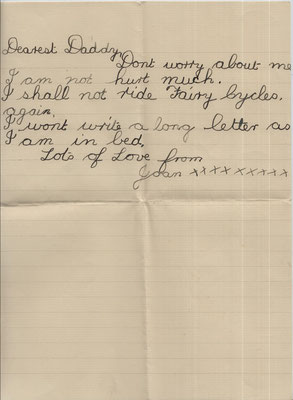 Dearest Daddy,
Dont worry about me
I am not hurt much.
I shall not ride Fairy Cycles.
again.
I wont write a long letter as
I am in bed.
Lots of Love from
Joan xxxxxxxxx